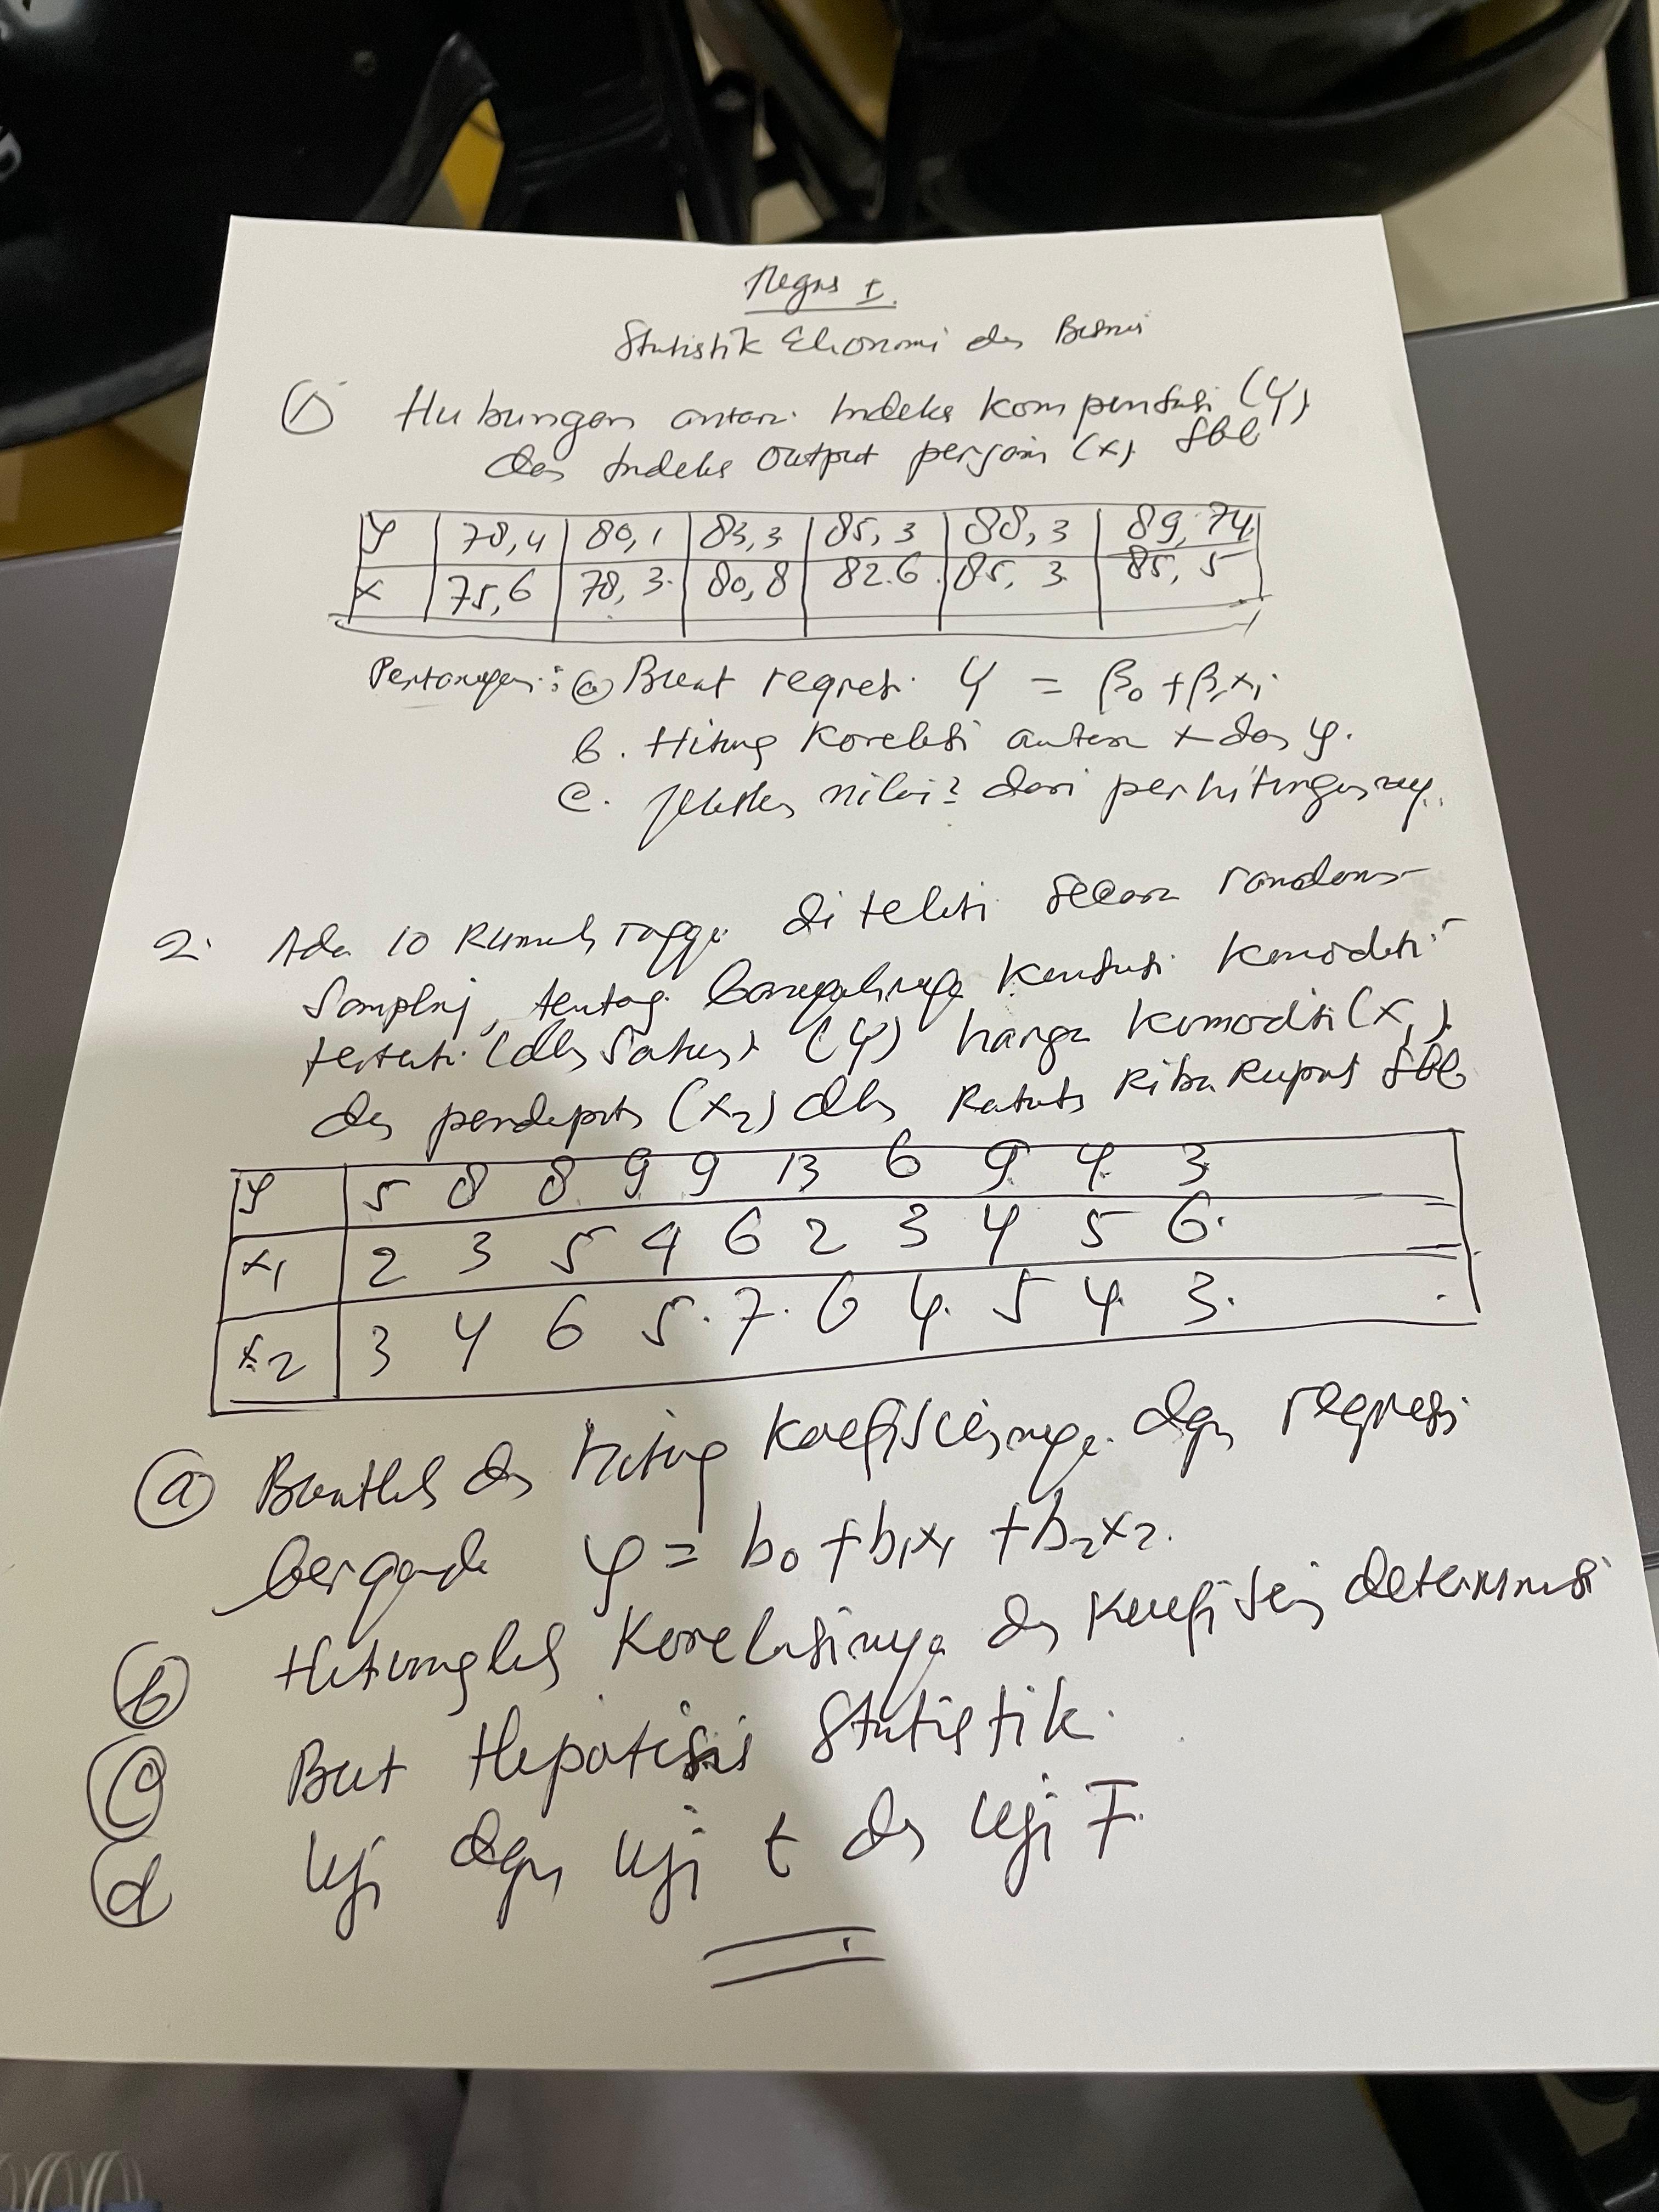 Tugas I.
Statistik Ekonomi dan Bisnis
① Hubungan antara Indeks Kompensasi (Y)
dan Indeks Output perjam (X) sbb
Y 78,4 80,1 83,3 85,3 88,3 89,74
X 75,6 78,3 80,8 82.6 85,3 85,5
Pertanyaan: ⓐ Buat regresi Y = β0 + β1X1
b. Hitung Korelasi antara X dan Y.
c. Jelaskan nilai2 dari perhitungannya.
2. Ada 10 Rumah tangga diteliti secara random
sampling, tentang banyaknya konsumsi komoditi
tertentu (dlm satuan) (Y) harga komoditi (X1)
dan pendapatan (X2) dlm Ratusan Ribu Rupiah sbb
Y 5 8 8 9 9 13 6 9 4 3
X1 2 3 5 4 6 2 3 4 5 6
X2 3 4 6 5 7 6 4 5 4 3
ⓐ Buatlah dan hitung Koefisiennya dgn regresi
berganda Y = b0 + b1X1 + b2X2.
ⓑ Hitunglah Korelasinya dan Koefisien determinasi
ⓒ Buat Hipotesis Statistik.
ⓓ Uji dgn uji t dan Uji F.